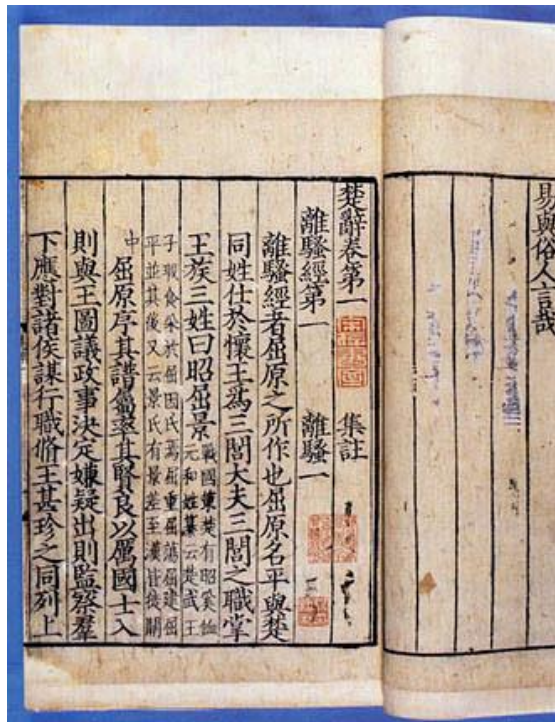 易與俗人言哉
楚辭卷第一 集註
離騷經第一 離騷一
離騷經者屈原之所作也屈原名平與楚
同姓仕於懷王為三閭大夫三閭之職掌
王族三姓曰昭屈景
戰國策楚有昭奚恤
元和姓纂云楚武王
子瑕食采於屈因氏焉屈重屈蕩屈建屈
平並其後又云景氏有景差至漢皆徙關
中
屈原序其譜屬率其賢良以厲國士入
則與王圖議政事決定嫌疑出則監察羣
下應對諸侯謀行職脩王甚珍之同列上